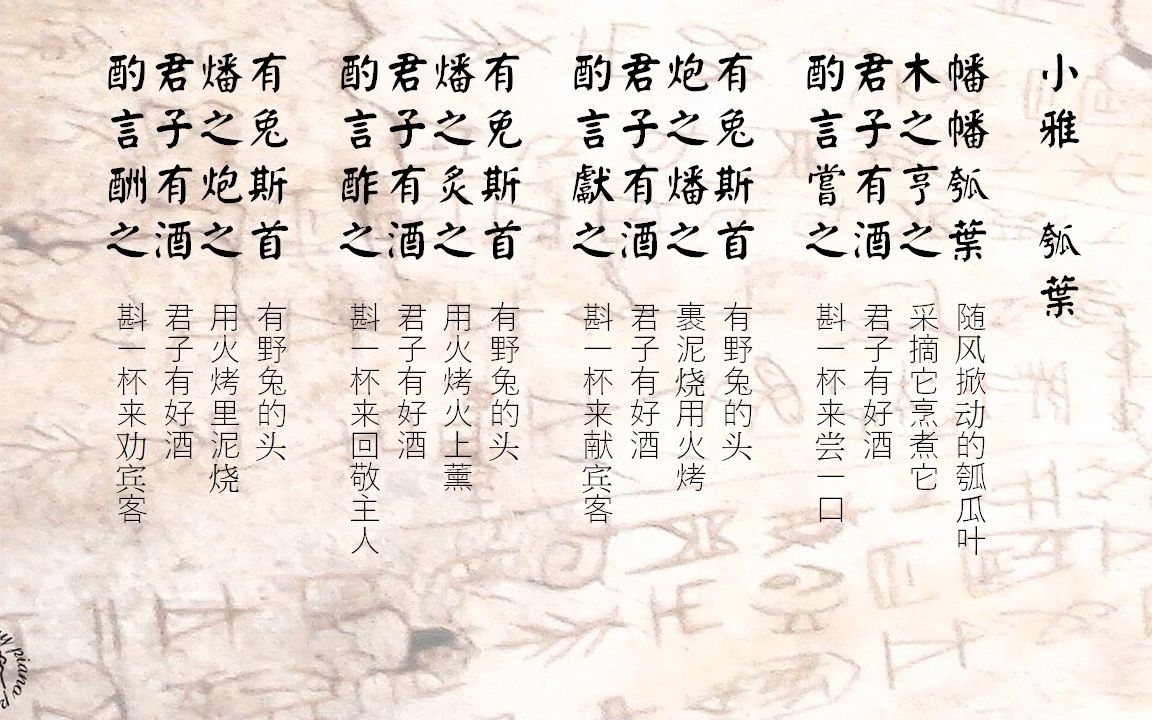 小雅 瓠葉
幡幡瓠葉
木之亨之
君子有酒
酌言嘗之
随风掀动的瓠瓜叶
采摘它烹煮它
君子有好酒
斟一杯来尝一口
有兔斯首
炮之燔之
君子有酒
酌言獻之
有野兔的头
裹泥烧用火烤
君子有好酒
斟一杯来献宾客
有免斯首
燔之炙之
君子有酒
酌言酢之
有野兔的头
用火烤火上薰
君子有好酒
斟一杯来回敬主人
有兔斯首
燔之炮之
君子有酒
酌言酬之
有野兔的头
用火烤里泥烧
君子有好酒
斟一杯来劝宾客
piano